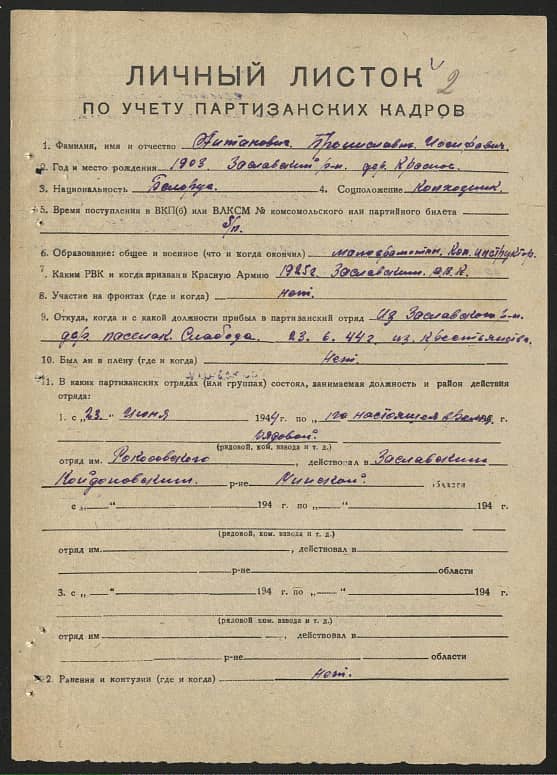 2
ЛИЧНЫЙ ЛИСТОК
ПО УЧЕТУ ПАРТИЗАНСКИХ КАДРОВ
1. Фамилия, имя и отчество Титанович Иосифович.
2. Год и место рождения 1903. Заславский р-н. дер. Красное.
3. Национальность Белорус. 4. Соцположение Колхозник.
5. Время поступления в ВКП(б) или ВЛКСМ № комсомольского или партийного билета
б/п.
6. Образование: общее и военное (что и когда окончил) малограмотн.
7. Каким РВК и когда призван в Красную Армию 1925г. Заславским р.в.к.
8. Участие на фронтах (где и когда) нет.
9. Откуда, когда и с какой должности прибыл в партизанский отряд Из Заславского р-н.
дер. Слабода. 23. 6. 44 г. из крестьянства.
10. Был ли в плену (где и когда) Нет.
11. В каких партизанских отрядах (или группах) состоял, занимаемая должность и район действия
отряда:
1. с „23" Июня 1944 г. по „ по настоящее время г.
рядовой.
(рядовой, ком. взвода и т. д.)
отряд им. Рокосовского, действовал в Заславским
Койдоновским. р-не Минской области
с „—"194 г. по „—"194 г.
(рядовой, ком. взвода и т. д.)
отряд им., действовал в
р-не области
3. с „—"194 г. по „—"194 г.
(рядовой ком. взвода и т. д.)
отряд им, действовал в
р-не области
2. Ранения и контузии (где и когда) нет.